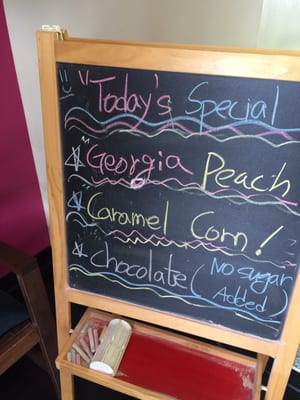 "Today's Special
"Georgia Peach
"Caramel Corn!
Chocolate (No sugar
Added)